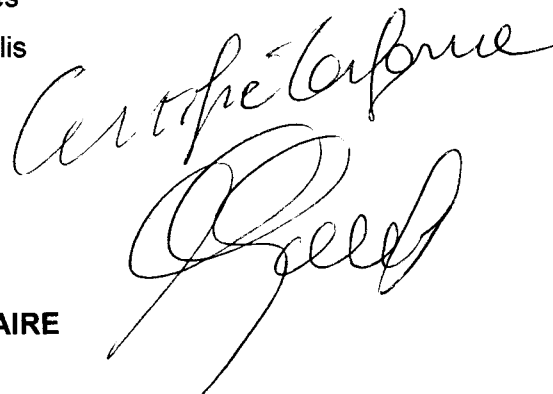 es
lis
Certifié Conforme
AIRE